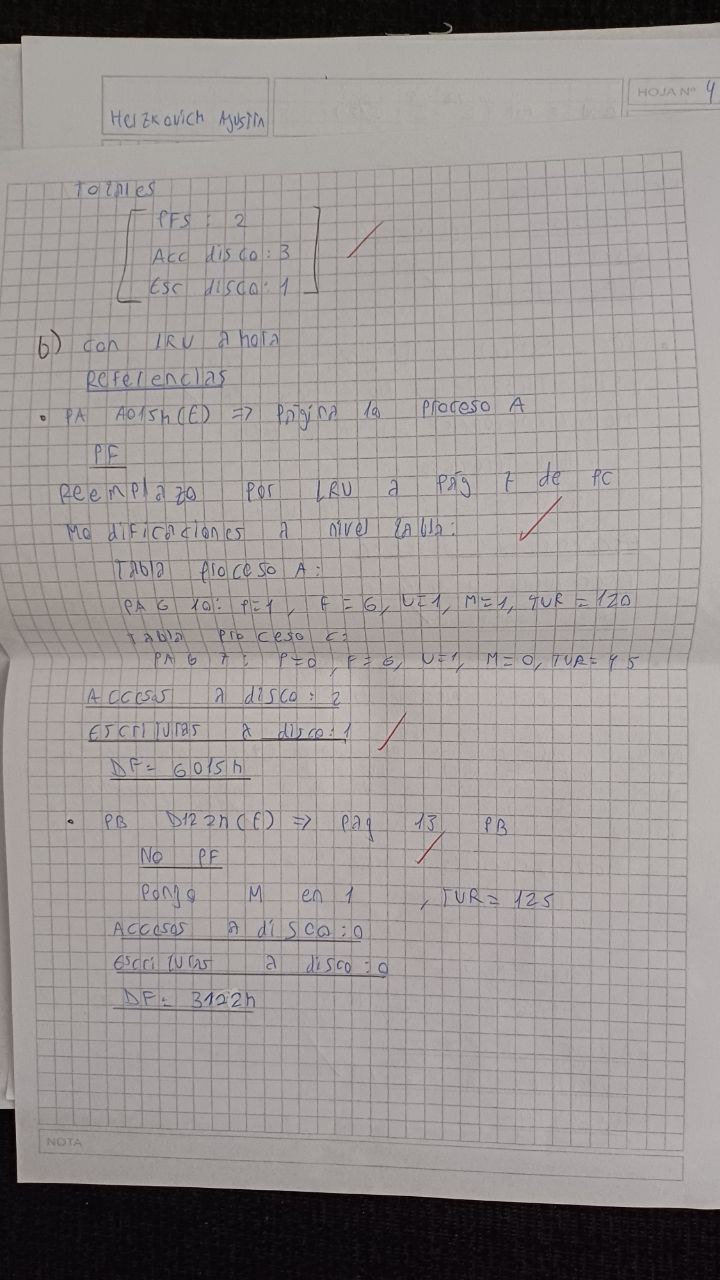 HOJA Nº 4
Herzkovich Agustin
Totales
PFS : 2
Acc disco : 3
Esc disco : 1
b) con LRU ahora
Referencias
• PA A015h (E) => Página 10 proceso A
PF
Reemplazo por LRU a pág 7 de PC
Modificaciones a nivel tabla:
Tabla proceso A:
PAG 10: P=1, F=6, U=1, M=1, TUR=120
Tabla proceso C:
PAG 7: P=0, F=6, U=1, M=0, TUR=45
Accesos a disco: 2
Escrituras a disco: 1
DF = 6015h
• PB D122h (E) => pág 13, PB
No PF
Pongo M en 1 , TUR = 125
Accesos a disco: 0
Escrituras a disco: 0
DF = 3122h
NOTA